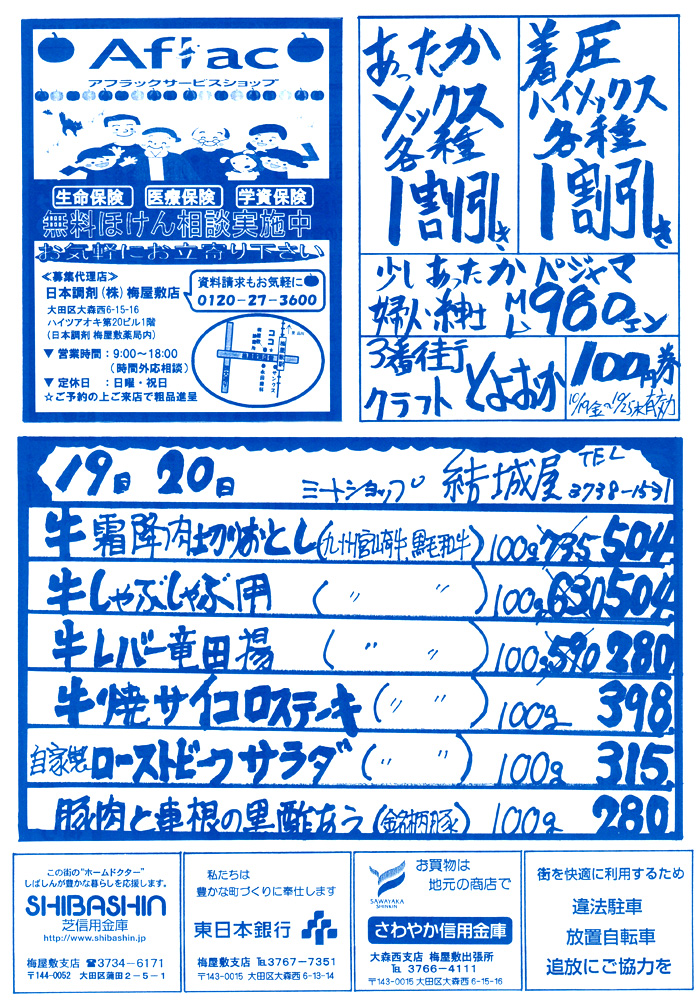 Aflac
アフラックサービスショップ
生命保険 医療保険 学資保険
無料ほけん相談実施中
お気軽にお立寄り下さい
≪募集代理店≫
日本調剤(株) 梅屋敷店
大田区大森西6-15-16
ハイツアオキ第20ビル1階
(日本調剤 梅屋敷薬局内)
資料請求もお気軽に
0120-27-3600
▼営業時間:9:00~18:00
(時間外応相談)
▼定休日 :日曜・祝日
☆ご予約の上ご来店で粗品進呈
ココ
あったか
ソックス
各種
1割引き
着圧
ハイソックス
各種
1割引き
少しあったかパジャマ
婦人・紳士 M L 980エン
3番街
クラフト とよおか
100円券
10/19金~10/25木有効
19日 20日
ミートショップ 結城屋 TEL 3738-1531
牛霜降肉切りおとし(九州宮崎牛、黒毛和牛) 100g 735 504
牛しゃぶしゃぶ用 ( 〃 〃 ) 100g 630 504
牛レバー竜田揚 ( 〃 〃 ) 100g 590 280
牛焼サイコロステーキ ( 〃 〃 ) 100g 398
自家製ローストビーフサラダ ( 〃 〃 ) 100g 315
豚肉と連根の黒酢あえ (銘柄豚) 100g 280
この街の"ホームドクター"
しばしんが豊かな暮らしを応援します。
SHIBASHIN
芝信用金庫
http://www.shibashin.jp
梅屋敷支店 ☎3734-6171
〒144-0052 大田区蒲田2-5-1
私たちは
豊かな町づくりに奉仕します
東日本銀行
梅屋敷支店 ℡3767-7351
〒143-0015 大田区大森西6-13-14
SAWAYAKA
SHINKIN
お買物は
地元の商店で
さわやか信用金庫
大森西支店 梅屋敷出張所
℡ 3766-4111
〒143-0015 大田区大森西6-15-16
街を快適に利用するため
違法駐車
放置自転車
追放にご協力を